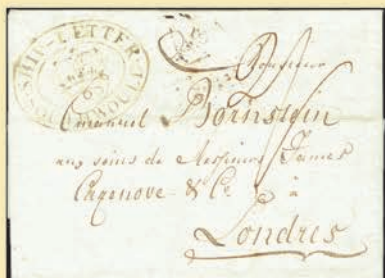 SHIP-LETTER
Monsieur
Emanuel Bornstein
aux soins de Messieurs James
Cazenove & Cº à
Londres